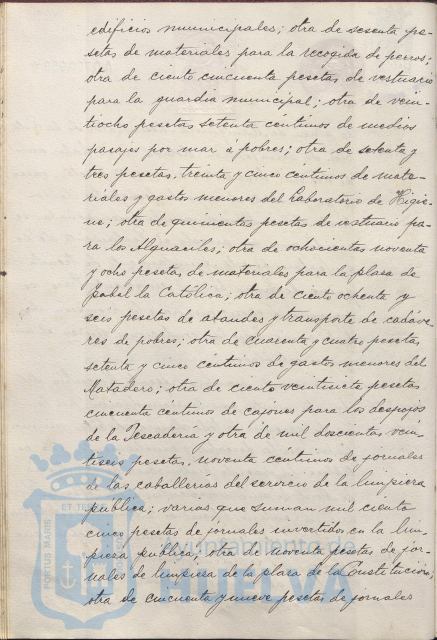 edificios municipales; otra de sesenta pe-
setas de materiales para la recogida de perros;
otra de ciento cincuenta pesetas de vestuario
para la guardia municipal; otra de vein-
tiocho pesetas setenta céntimos de medios
pasajes por mar a pobres; otra de setenta y
tres pesetas, treinta y cinco centimos de mate-
riales y gastos menores del Laboratorio de Higie-
ne; otra de quinientas pesetas de vestuario pa-
ra los Alguaciles; otra de ochocientas noventa
y ocho pesetas de materiales para la plaza de
Isabel la Católica; otra de ciento ochenta y
seis pesetas de ataudes y transporte de cadáve-
res de pobres; otra de cuarenta y cuatro pesetas,
setenta y cinco céntimos de gastos menores del
Matadero; otra de ciento veintisiete pesetas
cincuenta céntimos de cajones para los despojos
de la Pescaderia y otra de mil doscientas, vein-
tiseis pesetas, noventa céntimos de jornales
de las caballerias del servicio de la limpieza
pública; varias que suman mil ciento
cinco pesetas de jornales invertidos en la lim-
pieza publica; otra de noventa pesetas de jor-
nales de limpieza de la plaza de la Constitucion;
otra de cincuenta y nueve pesetas de jornales
PORTUS MARIS
ET TERRAE
Ayuntamiento de
HUELVA